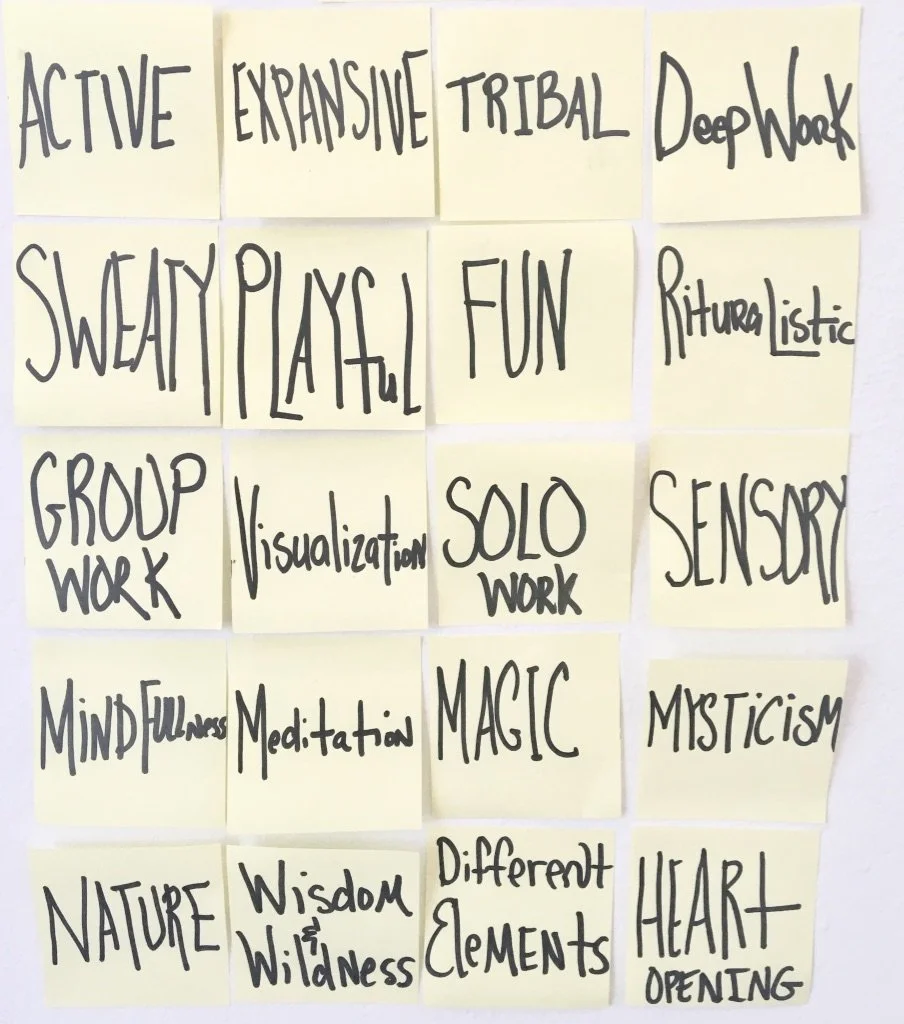 ACTIVE
EXPANSIVE
TRIBAL
Deep Work
SWEATY
PLAYfuL
FUN
RituraListic
GROUP
WORK
Visualization
SOLO
WORK
SENSORY
MiNDfullness
Meditation
MAGIC
MYSTiCiSM
NATURE
Wisdom
&
Wildness
Different
ElEMENts
HEARt
OPENING